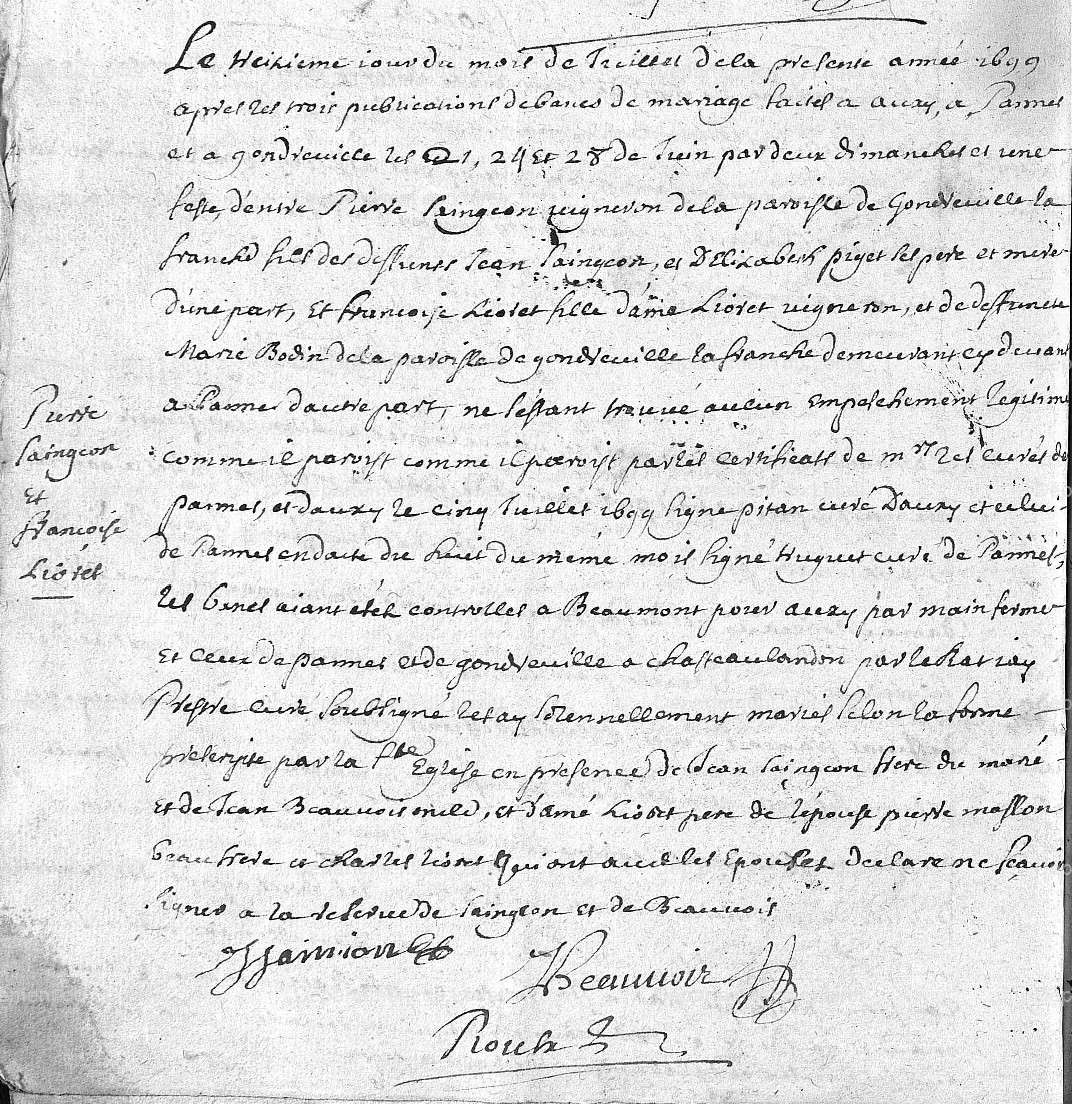 Le treizieme iour du mois de Iuillet de la presente année 1699
apres les trois publications de bancs de mariage faites a auxy, a Pannes
et a gondreuille les 21, 24 et 28 de Iuin par deux dimanches et une
feste, dentre Pierre Saingeon uigneron de la paroisse de Gondreuille la
franche fils des deffunts Iean Saingeon, et DElizabeth piget ses pere et mere
d'une part, Et francoise Lioret fille d'amé Lioret uigneron, et de deffuncte
Marie Bodin de la paroisse de gondreuille la franche demeurant cy deuant
a Pannes dautre part, ne sestant trouué aucun empeschement legitime
comme il paroist comme il paroist par les certificats de mrs les curés de
pannes, et dauxy le cinq Iuillet 1699 signé pitan curé Dauxy et celui
de Pannes en date du huit du méme mois signé huguet curé de Pannes,
les bancs aiant etés controllés a Beaumont pour auxy par main ferme
Et ceux de pannes et de gondreuille a chasteaulandon par
Prestre curé soubsigné les ay solennellement mariés selon la forme
prescripte par la Ste Eglise en presence de Iean Saingeon frere du marié
Et de Iean Beauuois, et d'amé Lioret pere de l'épouse pierre masson
beau frere et charles lioret qui ont auec les Epoux declaré ne scauoir
signer a la reserue de Saingeon et de Beauuois
Beauuoir
Pierre
Saingeon
Et
francoise
Lioret